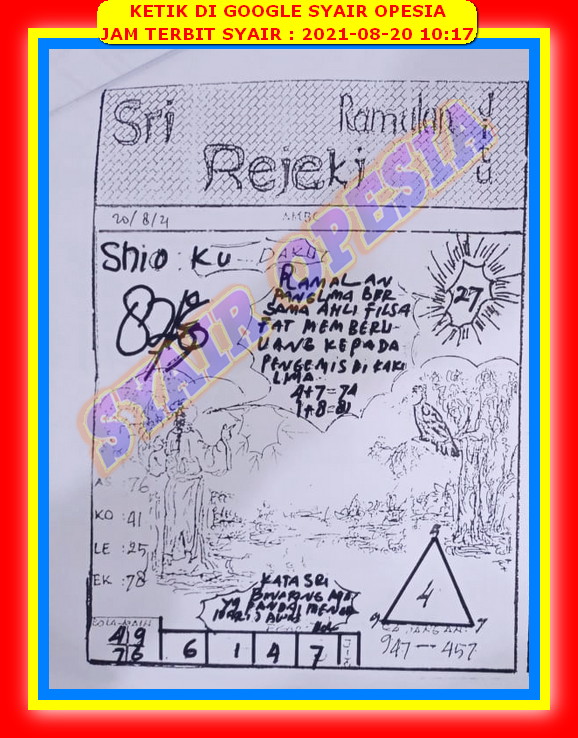 KETIK DI GOOGLE SYAIR OPESIA
JAM TERBIT SYAIR : 2021-08-20 10:17
Sri
Ramalan
Jitu
Rejeki
20/8/21
Shio KU
SYAIR OPESIA
27
RAMALAN
PANGLIMA BER
SAMA AHLI FILSA
FAT MEMBERU-
UANG KEPADA
PENGEMIS DI KAKI
LIMA
4+7=74
1+8=81
AS : 76
KO : 41
LE : 25
EK : 78
KATA SRI
BINATANG APA
YG PANDAI
4
9 7
947-457
4 9
7 6
6 1 4 7